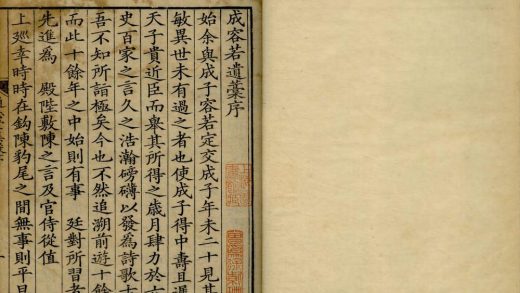 成容若遺藁序
始余與成子容若定交成子年未二十見其
敏異世未有過之者也使成子得中壽且遇
天子貴近臣而舉其所得之歲月肆力於六
史百家之言久之浩瀚磅礡以發為詩歌
吾不知所詣極矣今也不然追溯前遊十餘
而此十餘年之中始則有事 廷對所習者
先進為 殿陛敷陳之言及官侍從值
上廵幸時時在鈎陳豹尾之間無事則平